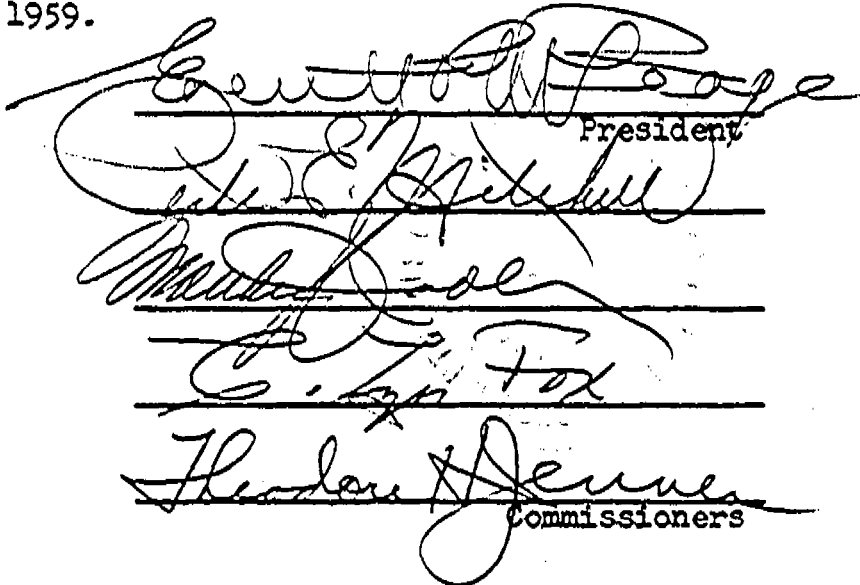 1959.
Everett C. McKeage
President
Peter E. Mitchell
Matthew J. Dooley
C. Lyn Fox
Theodore H. Jenner
Commissioners